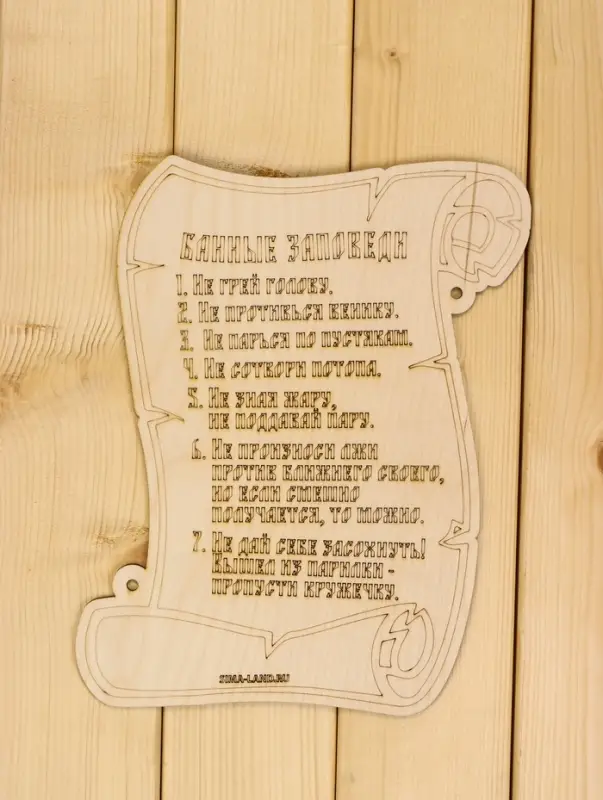 БАННЫЕ ЗАПОВЕДИ
1. Не грей голову.
2. Не противься венику.
3. Не парься по пустякам.
4. Не сотвори потопа.
5. Не зная жару,
не поддавай пару.
6. Не произноси лжи
против ближнего своего,
но если смешно
получается, то можно.
7. Не дай себе засохнуть!
Вышел из парилки -
пропусти кружечку.
SIMA-LAND.RU